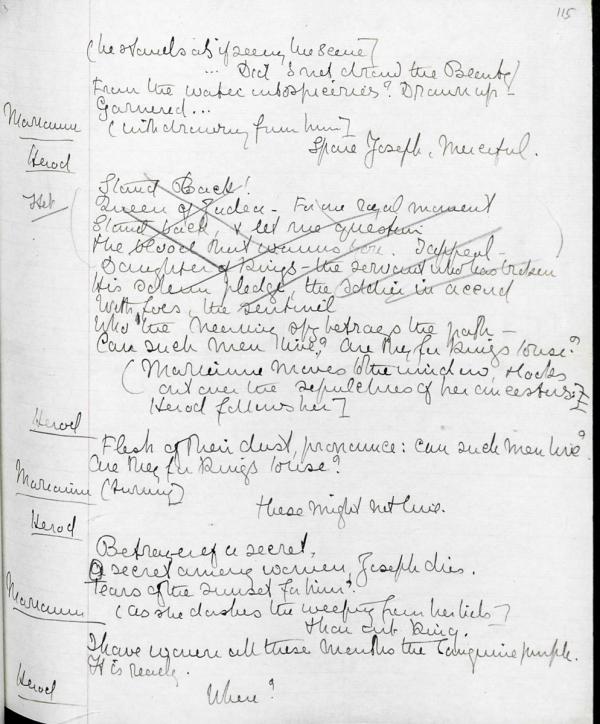 115
(he stands as if seeing the scene]
... Did I not draw the Beauty
From the water into spiceries? Drawn up -
Garnered...
Mariamne
(withdrawing from him]
Spare Joseph, Merciful.
Herod
Stand Back!
Queen of Judea - For one royal moment
Stand back, & let me question
The blood that warms you. I appeal -
Daughter of Kings - the servant who has broken
His solemn pledge, the soldier in accord
With foes, the sentinel
Who the nearing spy betrays the path -
Can such men live? Are they for Kings to use?
(Mariamne moves to the window, & looks
out over the sepulchres of her ancestors:
Herod follows her]
Herod
Flesh of their dust, pronounce: can such men live?
Are they for Kings to use?
Mariamne (turning]
These might not live.
Herod
Betrayer of a secret,
A secret among women, Joseph dies.
Tears of the sunset for him?
Mariamne
(as she dashes the weeping from her lids]
Thou art King.
I have woven all these months the sanguine purple.
It is ready.
Herod
Where?